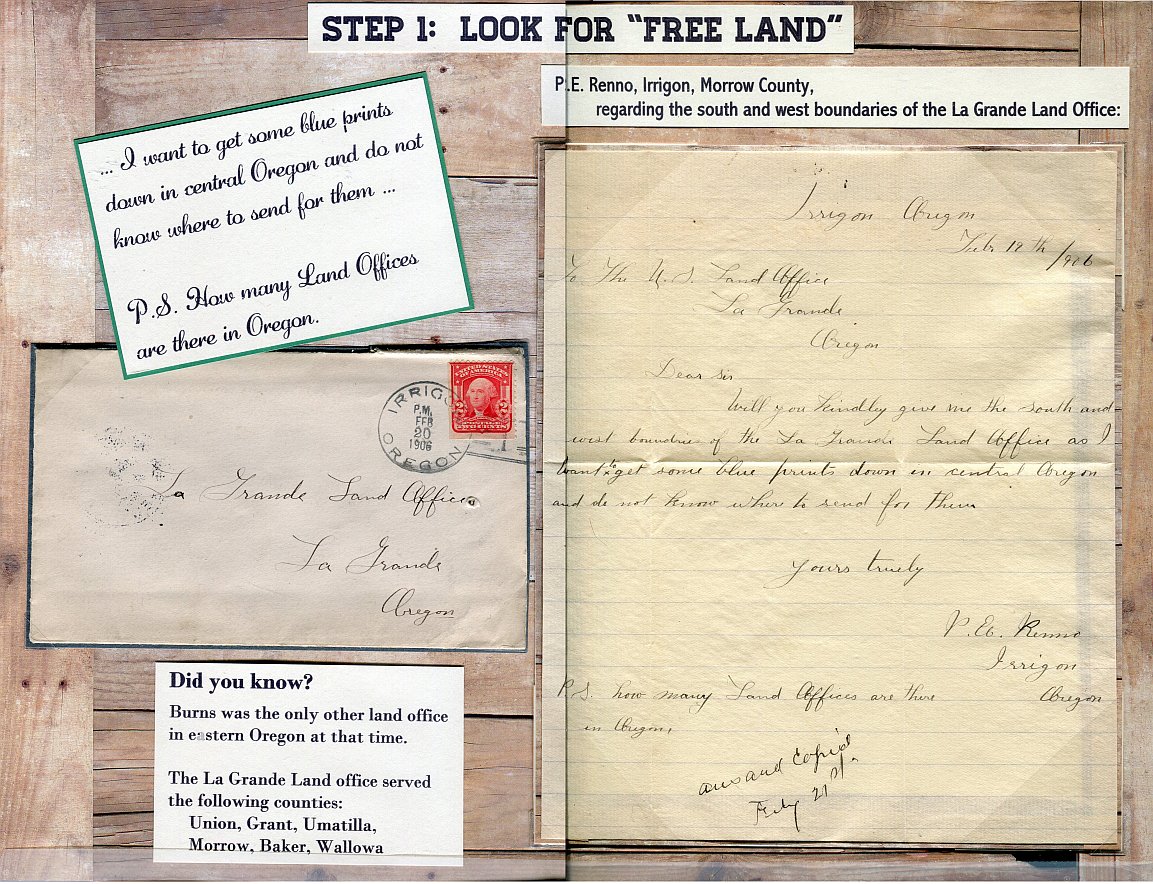 STEP 1: LOOK FOR "FREE LAND"
P.E. Renno, Irrigon, Morrow County,
regarding the south and west boundaries of the La Grande Land Office:
... I want to get some blue prints
down in central Oregon and do not
know where to send for them ...
P.S. How many Land Offices
are there in Oregon.
IRRIGON
P.M.
FEB
20
1906
OREGON
UNITED STATES
OF AMERICA
2 2
POSTAGE
TWO CENTS
1
La Grande Land Office
La Grande
Oregon
Did you know?
Burns was the only other land office
in eastern Oregon at that time.
The La Grande Land office served
the following counties:
Union, Grant, Umatilla,
Morrow, Baker, Wallowa
Irrigon Oregon
Feb. 19th/1906
To The U.S. Land Office
La Grande
Oregon
Dear sir
Will you kindly give me the south and
west boundries of the La Grande Land Office as I
want to get some blue prints down in central Oregon
and do not know where to send for them
yours truely
P.E. Renno
Irrigon
Oregon
P.S. how many Land Offices are there
in Oregon,
ans and Copied
Feby 21st